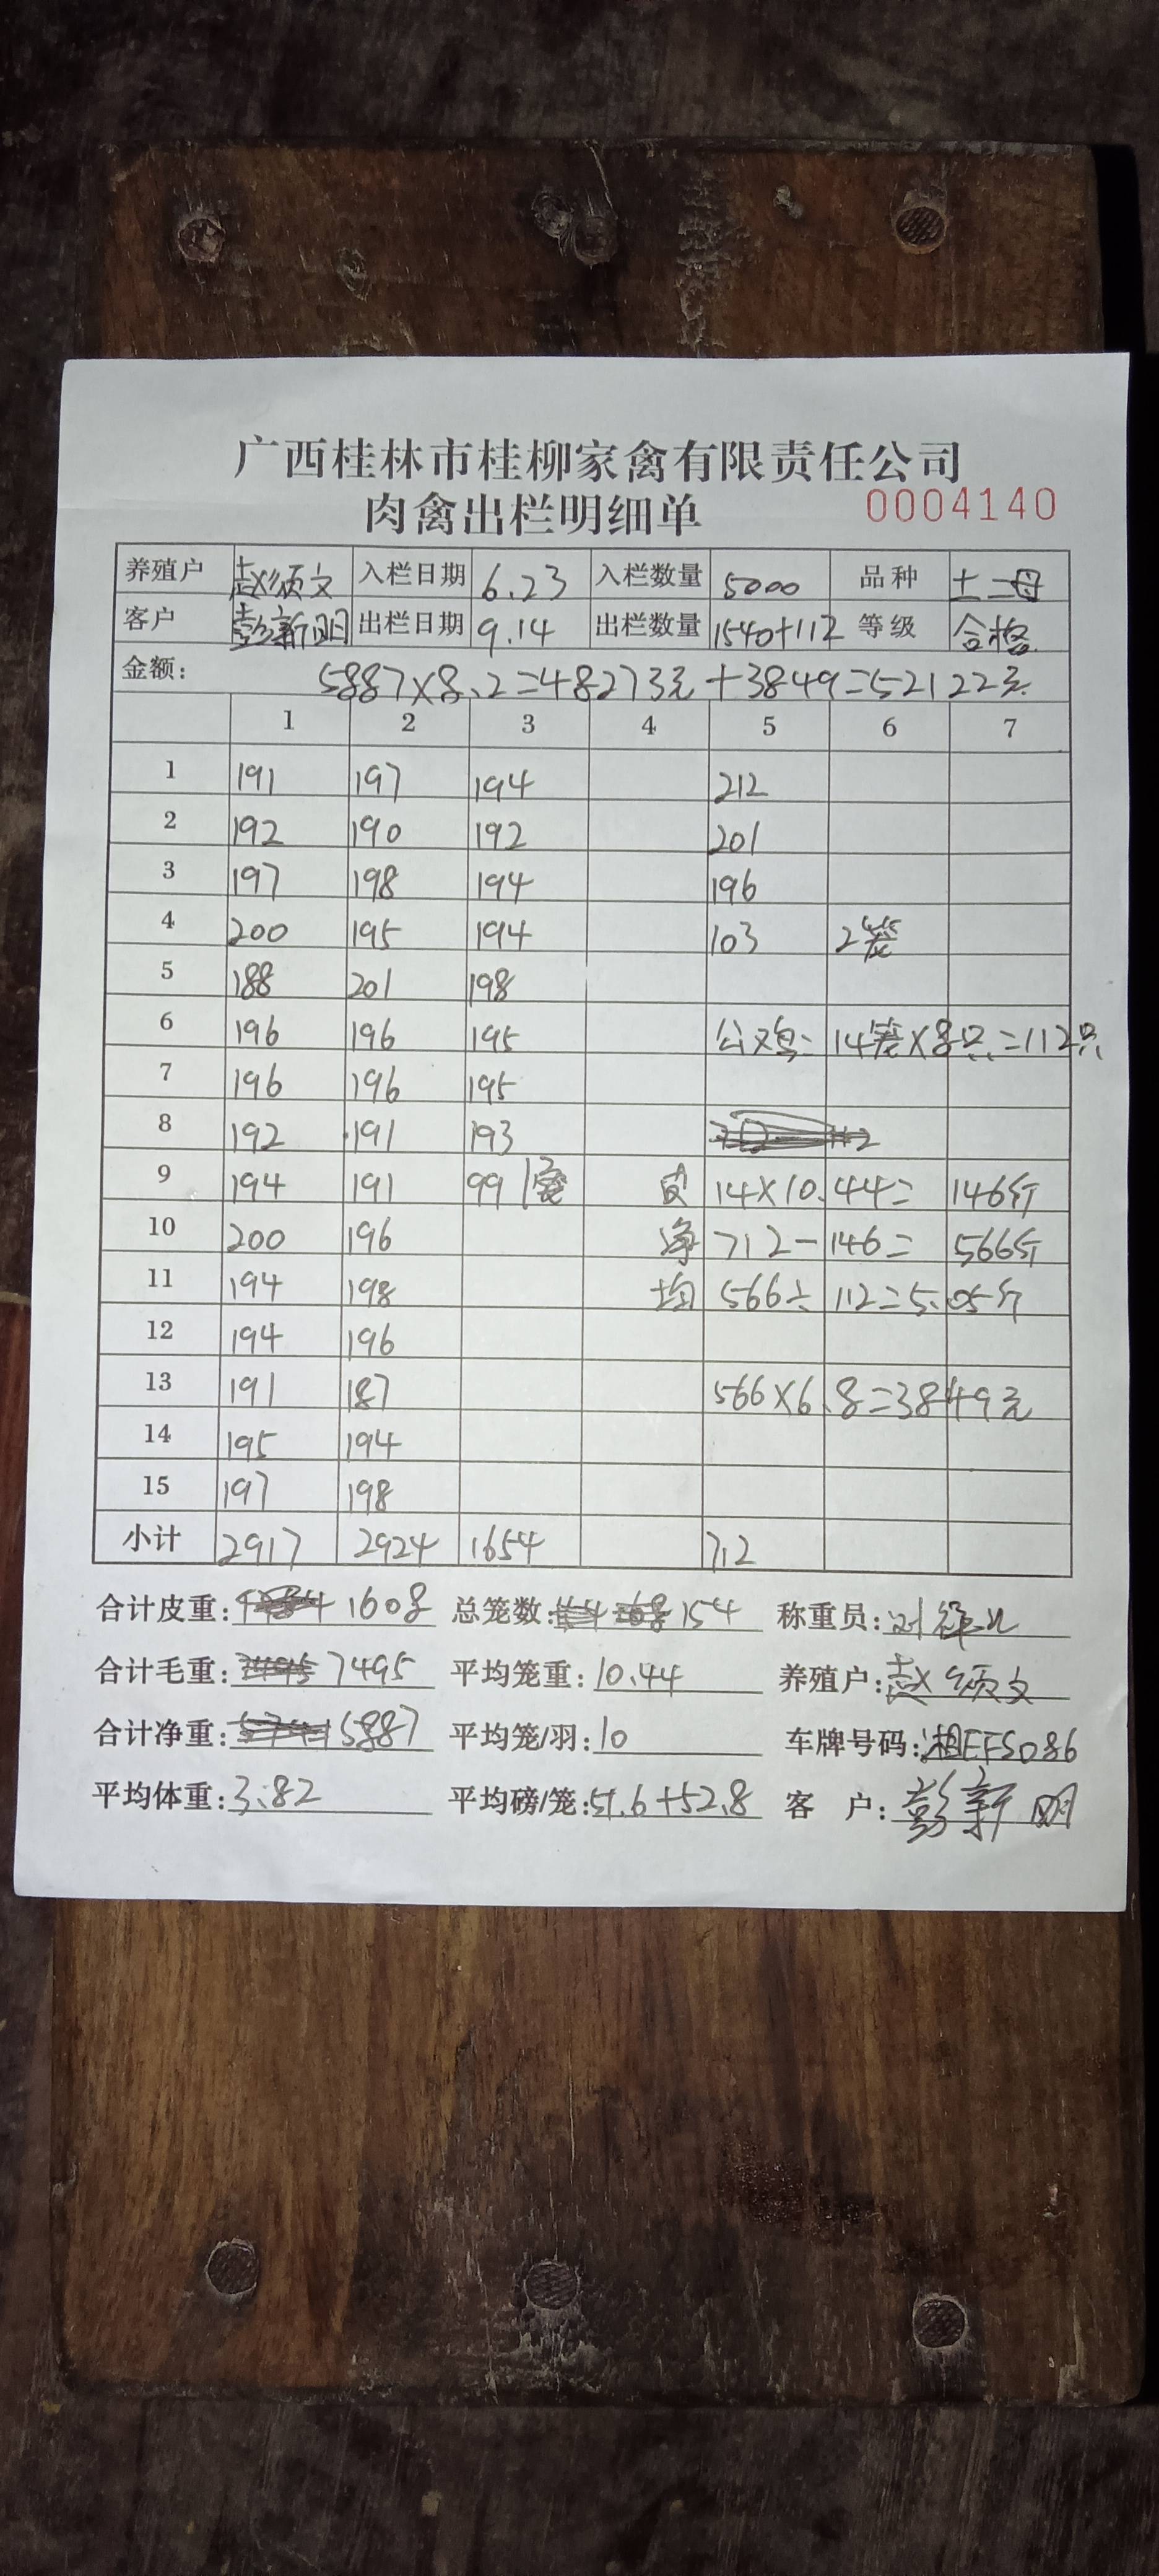 广西桂林市桂柳家禽有限责任公司
肉禽出栏明细单 0004140
养殖户 赵颂文 入栏日期 6.23 入栏数量 5000 品种 土二母
客户 彭新明 出栏日期 9.14 出栏数量 1540+112 等级 合格
金额: 5887×8.2=48273元+3849=52122元
1 2 3 4 5 6 7
1 191 197 194 212
2 192 190 192 201
3 197 198 194 196
4 200 195 194 103 2笼
5 188 201 198
6 196 196 195 公鸡: 14笼×8只=112只
7 196 196 195
8 192 191 193
9 194 191 99 1笼 皮 14×10.44= 146斤
10 200 196 净 712-146= 566斤
11 194 198 均 566÷112=5.05斤
12 194 196
13 191 187 566×6.8=3849元
14 195 194
15 197 198
小计 2917 2924 1654 712
合计皮重: 1608 总笼数: 154 称重员:
合计毛重: 7495 平均笼重: 10.44 养殖户: 赵颂文
合计净重: 5887 平均笼/羽: 10 车牌号码: 湘EFS086
平均体重: 3.82 平均磅/笼: 51.6+52.8 客 户: 彭新明